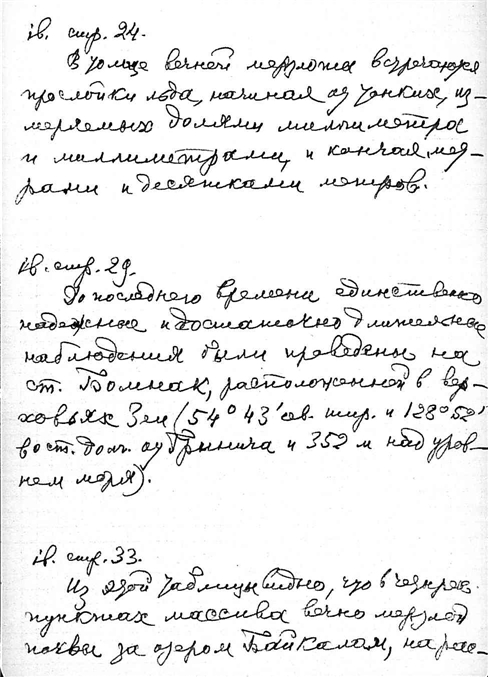 ib. стр. 24.
В толще вечной мерзлоты встречаются
прослойки льда, начиная от тонких, из-
меряемых долями миллиметра
и миллиметрами, и кончая мет-
рами и десятками метров.
ib. стр. 29.
До последнего времени единственно
надежные и достаточно длительные
наблюдения были проведены на
ст. Бомнак, расположенной в вер-
ховьях Зеи (54° 43' сев. шир. и 128° 52'
вост. долг. от Гринича и 352 м над уров-
нем моря).
ib. стр. 33.
Из этой таблицы видно, что в четырех
пунктах массива вечно мерзлой
почвы за озером Байкалом, на рас-